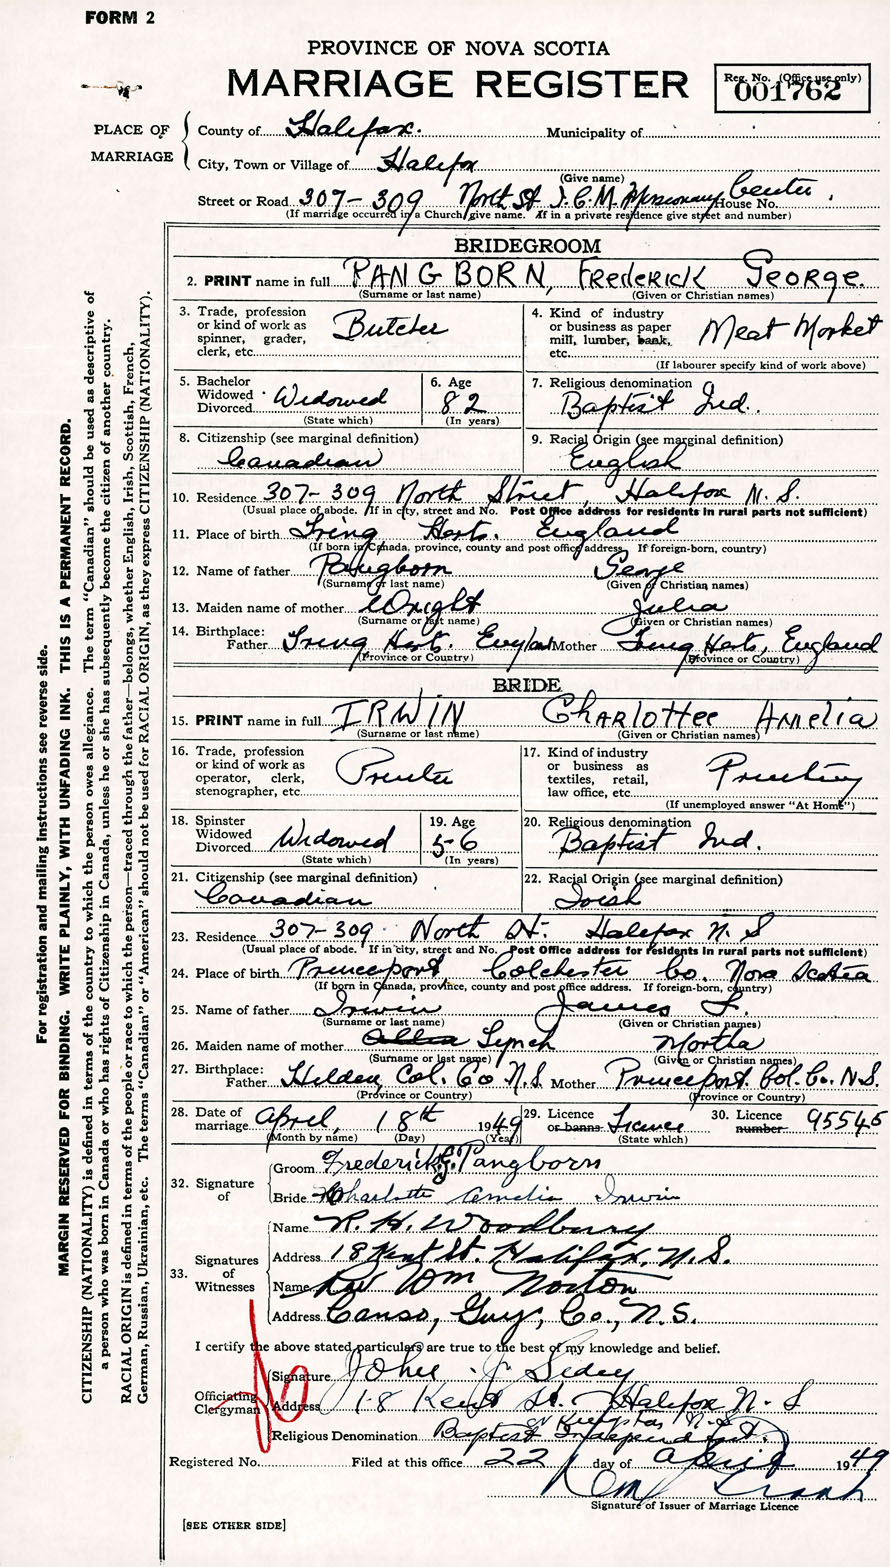 FORM 2
PROVINCE OF NOVA SCOTIA
MARRIAGE REGISTER
Reg. No. (Office use only)
001762
PLACE OF MARRIAGE
County of Halifax. Municipality of
City, Town or Village of Halifax
(Give name)
Street or Road 307-309 North St I.C.M. Missionary Center. House No.
(If marriage occurred in a Church give name. If in a private residence give street and number)
BRIDEGROOM
2. PRINT name in full PANGBORN, FrederICK George.
(Surname or last name) (Given or Christian names)
3. Trade, profession or kind of work as spinner, grader, clerk, etc. Butcher
4. Kind of industry or business as paper mill, lumber, bank, etc. Meat Market
(If labourer specify kind of work above)
5. Bachelor Widowed Divorced Widowed
(State which)
6. Age 82
(In years)
7. Religious denomination Baptist Ind.
8. Citizenship (see marginal definition) Canadian
9. Racial Origin (see marginal definition) English
10. Residence 307-309 North Street, Halifax N.S.
(Usual place of abode. If in city, street and No. Post Office address for residents in rural parts not sufficient)
11. Place of birth Tring Herts. England
(If born in Canada, province, county and post office address. If foreign-born, country)
12. Name of father Pangborn George
(Surname or last name) (Given or Christian names)
13. Maiden name of mother Wright Julia
(Surname or last name) (Given or Christian names)
14. Birthplace: Father Tring Herts. England Mother Tring Herts, England
(Province or Country) (Province or Country)
BRIDE
15. PRINT name in full IRWIN CHARLOTTEE AMELIA
(Surname or last name) (Given or Christian names)
16. Trade, profession or kind of work as operator, clerk, stenographer, etc. Printer
17. Kind of industry or business as textiles, retail, law office, etc. Printing
(If unemployed answer "At Home")
18. Spinster Widowed Divorced Widowed
(State which)
19. Age 56
(In years)
20. Religious denomination Baptist Ind.
21. Citizenship (see marginal definition) Canadian
22. Racial Origin (see marginal definition) Irish
23. Residence 307-309 North St. Halifax N.S
(Usual place of abode. If in city, street and No. Post Office address for residents in rural parts not sufficient)
24. Place of birth Princeport, Colchester Co. Nova Scotia
(If born in Canada, province, county and post office address. If foreign-born, country)
25. Name of father Irwin James
(Surname or last name) (Given or Christian names)
26. Maiden name of mother Lynch Martha
(Surname or last name) (Given or Christian names)
27. Birthplace: Father Hilden, Col. Co N.S. Mother Princeport. Col. Co. N.S.
(Province or Country) (Province or Country)
28. Date of marriage April, 18th 1949
(Month by name) (Day) (Year)
29. Licence or banns License
(State which)
30. Licence number 95546
32. Signature of
Groom Frederick G. Pangborn
Bride Charlotte Amelia Irwin
33. Signatures of Witnesses
Name R. H. Woodbury
Address 18 Kent St. Halifax, N.S.
Name Rev Wm Norton
Address Canso, Guy, Co., N.S.
I certify the above stated particulars are true to the best of my knowledge and belief.
Officiating Clergyman
Signature John J. Sidey
Address 18 Kent St. Halifax N.S
or Kempton N.S
Religious Denomination Baptist Independent.
Registered No. Filed at this office 22 day of April 1949
Signature of Issuer of Marriage Licence
[SEE OTHER SIDE]
For registration and mailing instructions see reverse side.
MARGIN RESERVED FOR BINDING. WRITE PLAINLY, WITH UNFADING INK. THIS IS A PERMANENT RECORD.
CITIZENSHIP (NATIONALITY) is defined in terms of the country to which the person owes allegiance. The term "Canadian" should be used as descriptive of
a person who was born in Canada or who has rights of Citizenship in Canada, unless he or she has subsequently become the citizen of another country.
RACIAL ORIGIN is defined in terms of the people or race to which the person—traced through the father—belongs, whether English, Irish, Scottish, French,
German, Russian, Ukrainian, etc. The terms "Canadian" or "American" should not be used for RACIAL ORIGIN, as they express CITIZENSHIP (NATIONALITY).